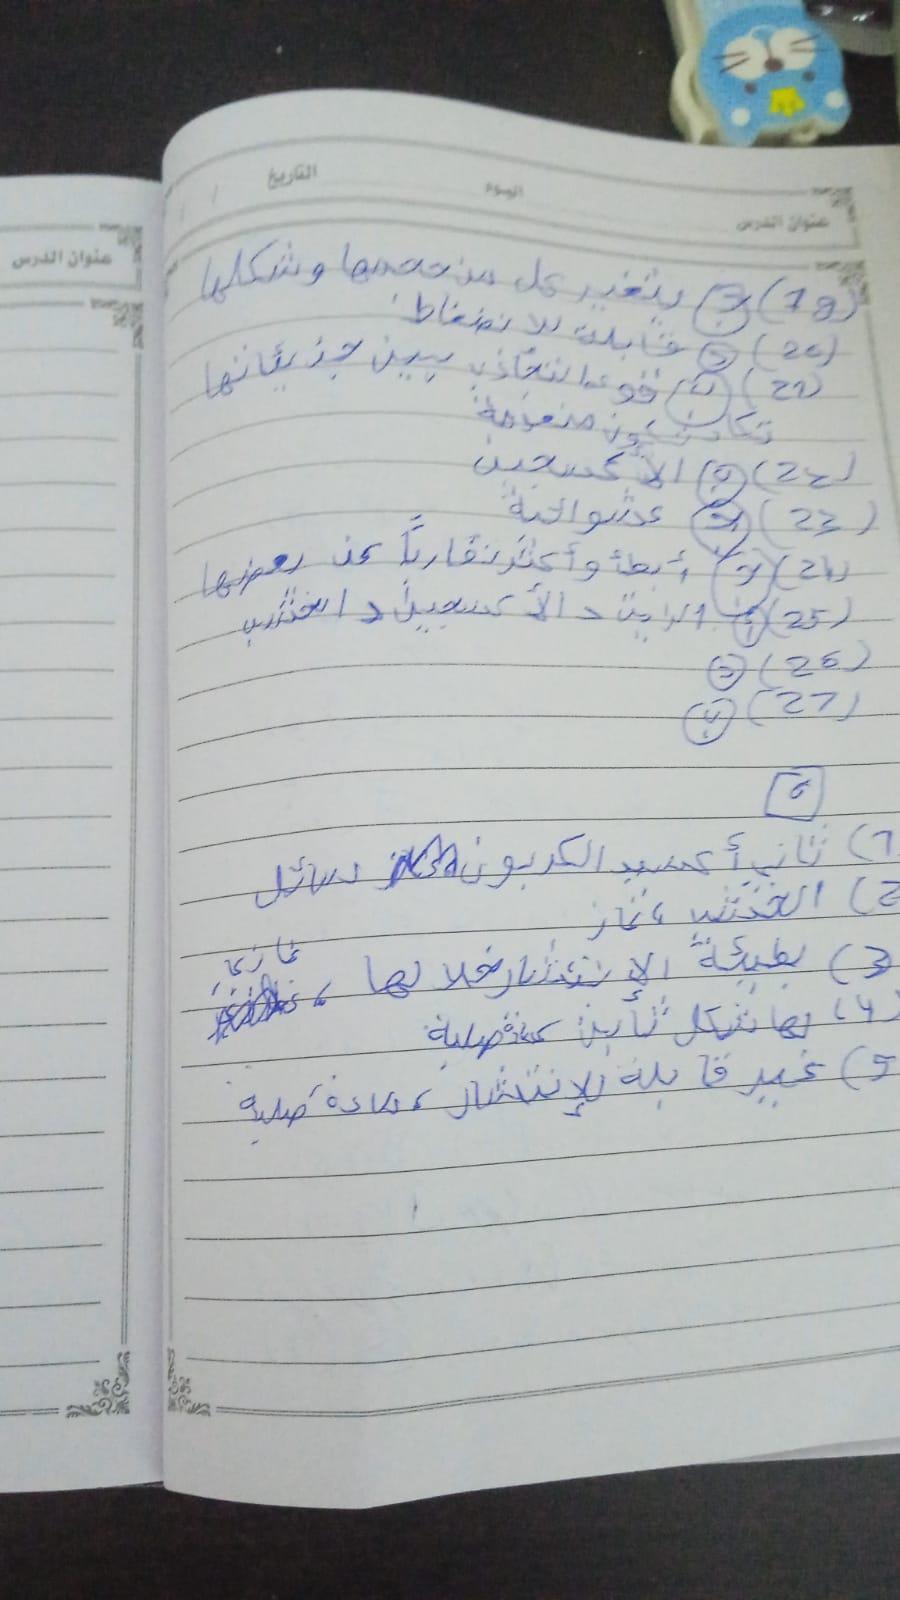 عنوان الدرس
اليوم
التاريخ
عنوان الدرس
19) ج يتغير كل من حجمها وشكلها
20) د قابلة للانضغاط
21) ب قوى التجاذب بين جزيئاتها
تكاد تكون منعدمة
22) الأكسجين
23) عشوائية
24) أبطأ وأكثر تقارباً عن بعضها
25) أ الزيت د الأكسجين د الخشب
26) د
27) ب
1) ثاني أكسيد الكربون سائل
2) الخشب ، غاز
3) بطيئة الانتشار خلالها ، غازية
4) لها شكل ثابت صلبة
5) غير قابلة للإنتشار ، مادة صلبة